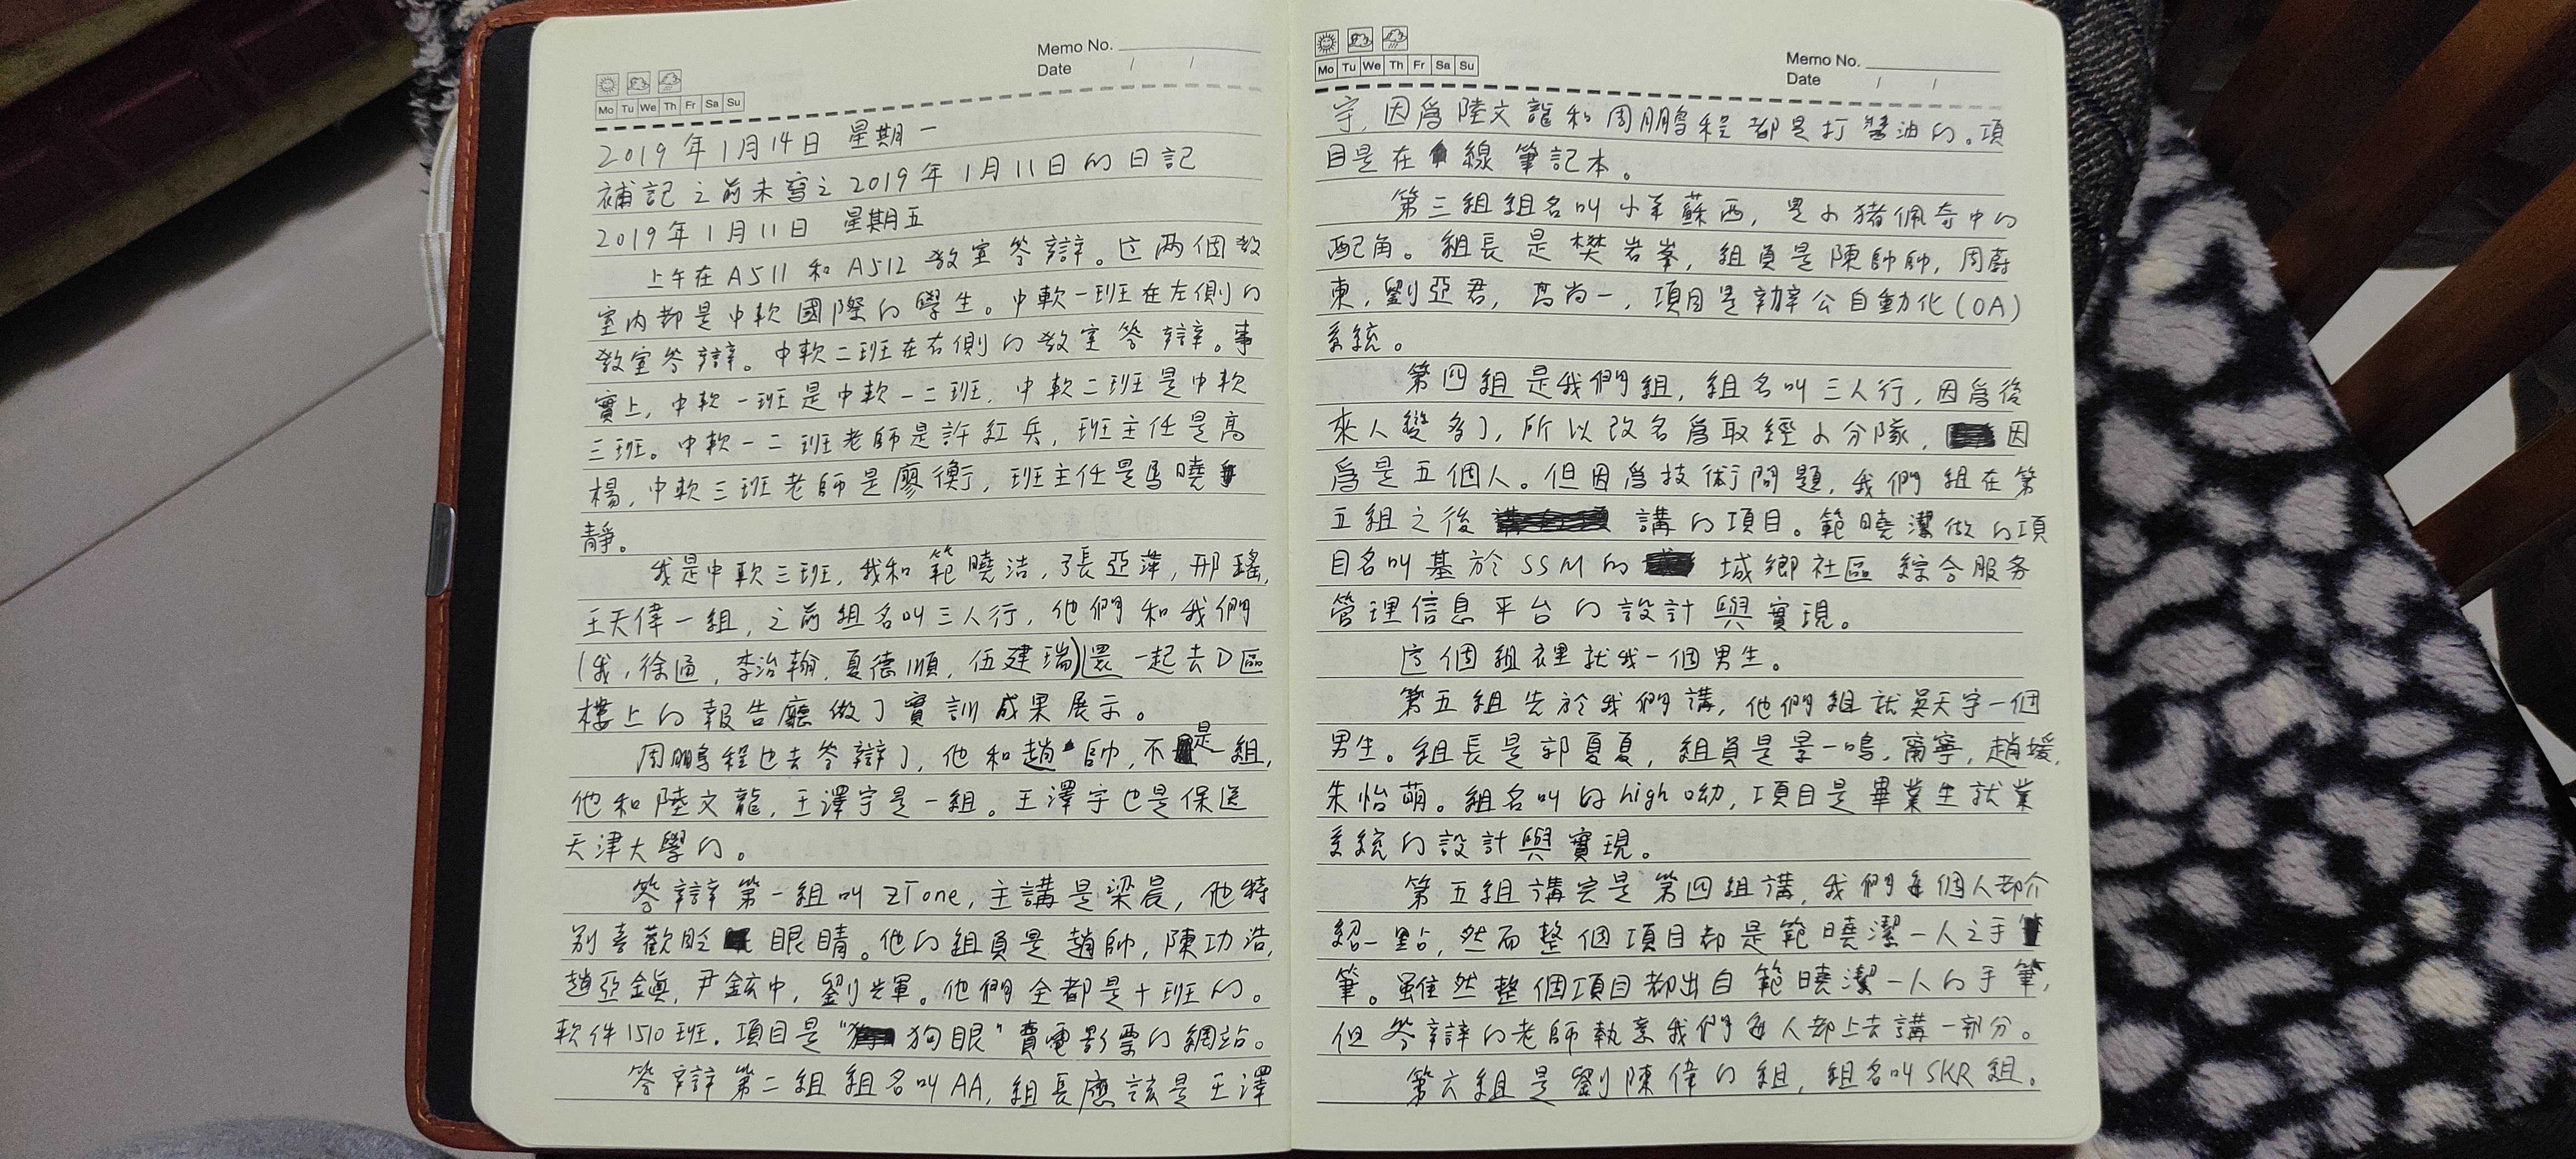 Memo No.
Date / /
Mo Tu We Th Fr Sa Su
2019年1月14日 星期一
補記之前未寫之2019年1月11日的日記
2019年1月11日 星期五
上午在A511和A512教室答辯。这两個教
室内都是中軟國際的學生。中軟一班在左側的
教室答辯。中軟二班在右側的教室答辯。事
實上,中軟一班是中軟一二班,中軟二班是中軟
三班。中軟一二班老師是許紅兵,班主任是高
楊,中軟三班老師是廖衡,班主任是馬曉
靜。
我是中軟三班,我和範曉洁,張亞萍,邢瑤,
王天偉一組,之前組名叫三人行,他們和我們
(我,徐通,李治翰,夏德順,伍建瑞)還一起去D區
樓上的報告廳做了實訓成果展示。
周鵬程也去答辯了,他和趙帥,不是一組,
他和陸文龍,王澤宇是一組。王澤宇也是保送
天津大學的。
答辯第一組叫ZTone,主講是梁晨,他特
别喜歡眨眼睛。他的組員是趙帥,陳功浩,
趙亞鎮,尹鉉中,劉光軍。他們全都是十班的。
軟件1510班。項目是“狗眼”賣電影票的網站。
答辯第二組組名叫AA,組長應該是王澤
Memo No.
Date / /
Mo Tu We Th Fr Sa Su
宇,因爲陸文龍和周鵬程都是打醬油的。項
目是在線筆記本。
第三組組名叫小羊蘇西,是小猪佩奇中的
配角。組長是樊岩峯,組員是陳帥帥,周蔚
東,劉亞君,馮尚一,項目是辦公自動化(OA)
系統。
第四組是我們組,組名叫三人行,因爲後
來人變多了,所以改名爲取經小分隊,因
爲是五個人。但因爲技術問題,我們組在第
五組之後講的項目。範曉潔做的項
目名叫基於SSM的城鄉社區綜合服务
管理信息平台的設計與實現。
這個組裡就我一個男生。
第五組先於我們講,他們組就吳天宇一個
男生。組長是郭夏夏,組員是景一鳴,甯寧,趙媛,
朱怡萌。組名叫的high呦,項目是畢業生就業
系統的設計與實現。
第五組講完是第四組講,我們每個人都介
紹一點,然而整個項目都是範曉潔一人之手
筆。雖然整個項目都出自範曉潔一人的手筆,
但答辯的老師執意我們每人都上去講一部分。
第六組是劉陳偉的組,組名叫SKR組。